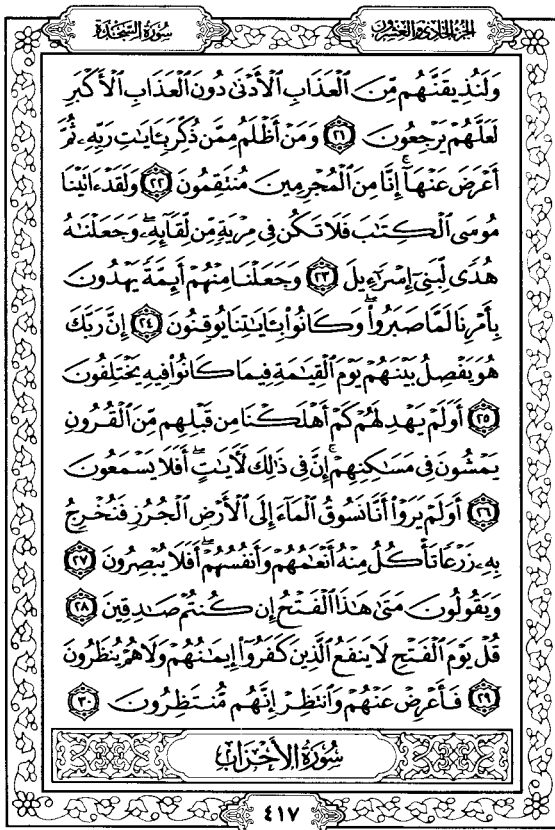 الجزء الحادي والعشرون سورة السجدة
وَلَنُذِيقَنَّهُم مِّنَ ٱلْعَذَابِ ٱلْأَدْنَىٰ دُونَ ٱلْعَذَابِ ٱلْأَكْبَرِ
لَعَلَّهُمْ يَرْجِعُونَ ٢١ وَمَنْ أَظْلَمُ مِمَّن ذُكِّرَ بِـَٔايَٰتِ رَبِّهِۦ ثُمَّ
أَعْرَضَ عَنْهَآ ۚ إِنَّا مِنَ ٱلْمُجْرِمِينَ مُنتَقِمُونَ ٢٢ وَلَقَدْ ءَاتَيْنَا
مُوسَى ٱلْكِتَٰبَ فَلَا تَكُن فِى مِرْيَةٍ مِّن لِّقَآئِهِۦ ۖ وَجَعَلْنَٰهُ
هُدًى لِّبَنِىٓ إِسْرَٰٓءِيلَ ٢٣ وَجَعَلْنَا مِنْهُمْ أَئِمَّةً يَهْدُونَ
بِأَمْرِنَا لَمَّا صَبَرُوا۟ ۖ وَكَانُوا۟ بِـَٔايَٰتِنَا يُوقِنُونَ ٢٤ إِنَّ رَبَّكَ
هُوَ يَفْصِلُ بَيْنَهُمْ يَوْمَ ٱلْقِيَٰمَةِ فِيمَا كَانُوا۟ فِيهِ يَخْتَلِفُونَ
٢٥ أَوَلَمْ يَهْدِ لَهُمْ كَمْ أَهْلَكْنَا مِن قَبْلِهِم مِّنَ ٱلْقُرُونِ
يَمْشُونَ فِى مَسَٰكِنِهِمْ ۚ إِنَّ فِى ذَٰلِكَ لَـَٔايَٰتٍ ۖ أَفَلَا يَسْمَعُونَ
٢٦ أَوَلَمْ يَرَوْا۟ أَنَّا نَسُوقُ ٱلْمَآءَ إِلَى ٱلْأَرْضِ ٱلْجُرُزِ فَنُخْرِجُ
بِهِۦ زَرْعًا تَأْكُلُ مِنْهُ أَنْعَٰمُهُمْ وَأَنفُسُهُمْ ۖ أَفَلَا يُبْصِرُونَ ٢٧
وَيَقُولُونَ مَتَىٰ هَٰذَا ٱلْفَتْحُ إِن كُنتُمْ صَٰدِقِينَ ٢٨
قُلْ يَوْمَ ٱلْفَتْحِ لَا يَنفَعُ ٱلَّذِينَ كَفَرُوٓا۟ إِيمَٰنُهُمْ وَلَا هُمْ يُنظَرُونَ
٢٩ فَأَعْرِضْ عَنْهُمْ وَٱنتَظِرْ إِنَّهُم مُّنتَظِرُونَ ٣٠
سُورَةُ الأَحْزَابِ
٤١٧